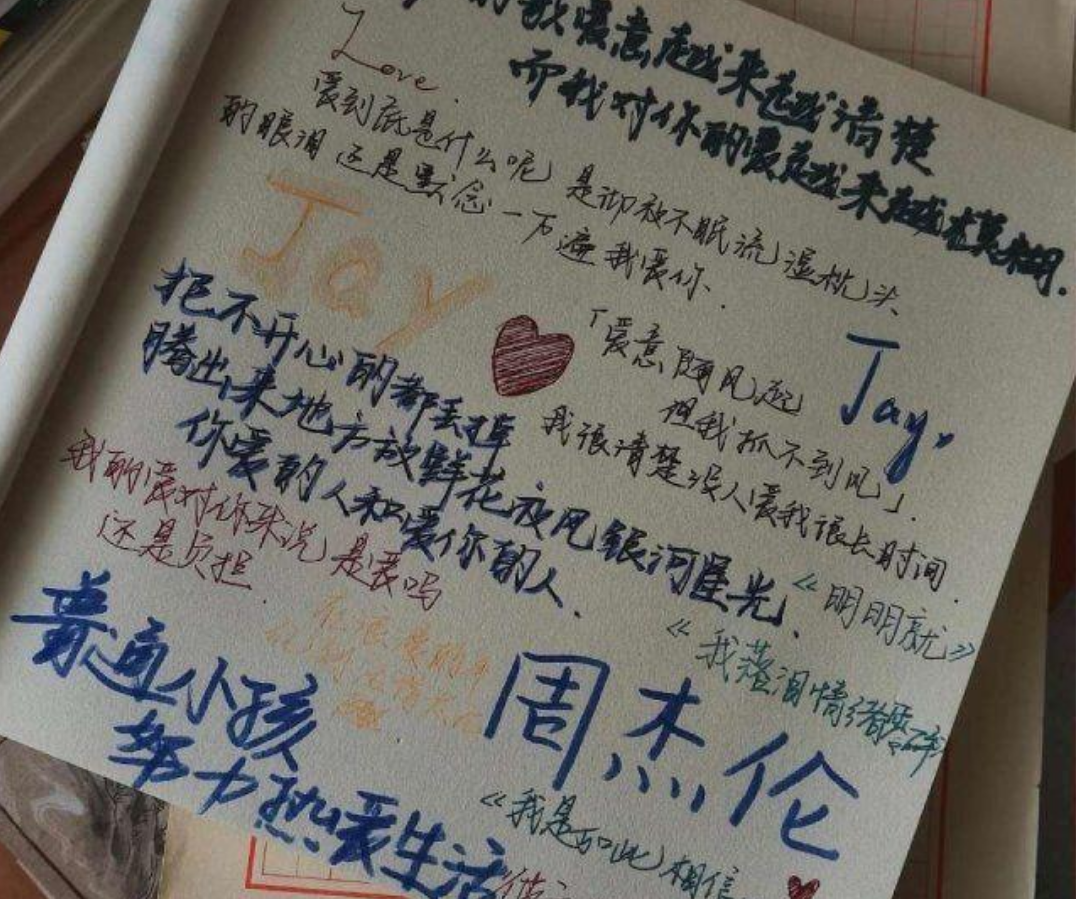 的歌爱意越来越清楚
而我对你的爱越来越模糊.
Love.
爱到底是什么呢 是彻夜不眠流湿枕头
的眼泪 还是默念一万遍我爱你.
Jay
「爱意随风起
但我抓不到风」.
Jay,
我很清楚没人爱我很长时间.
把不开心的都丢掉
腾出来地方放鲜花夜风银河星光.
你爱的人和爱你的人.
我的爱对你来说是爱吗
还是负担.
《明明就》
《我落泪情绪零碎
普通小孩
努力热爱生活
周杰伦
《我是如此相信